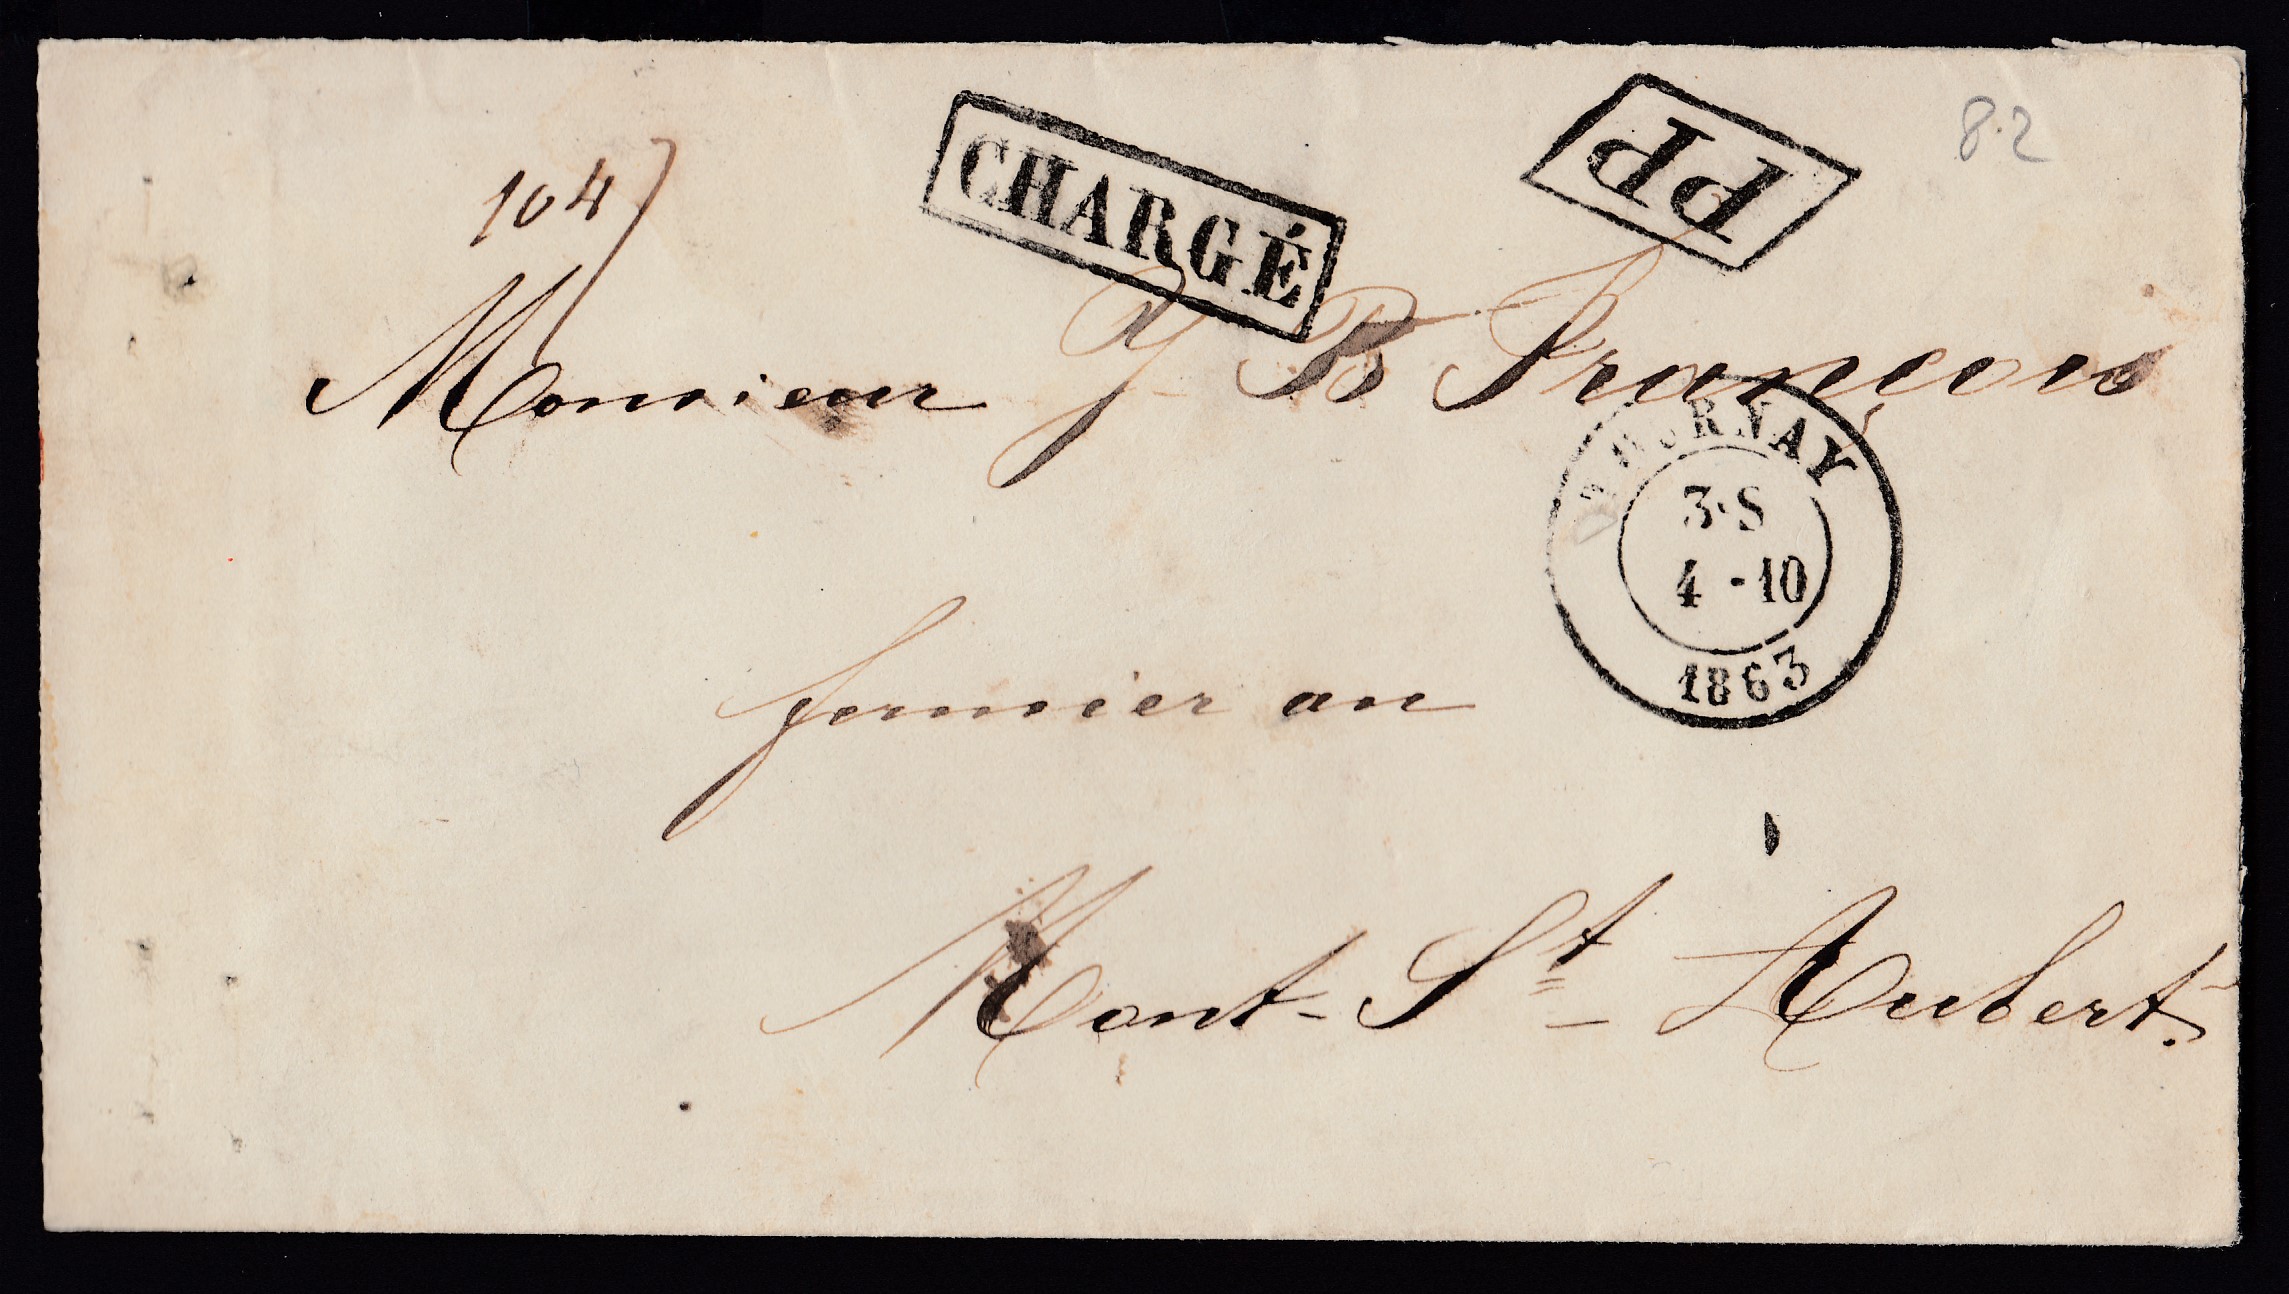 8.2
CHARGÉ
PP
104
Monsieur J. B François
TOURNAY
3·S
4 - 10
1863
fermier au
Mont-St-Aubert.